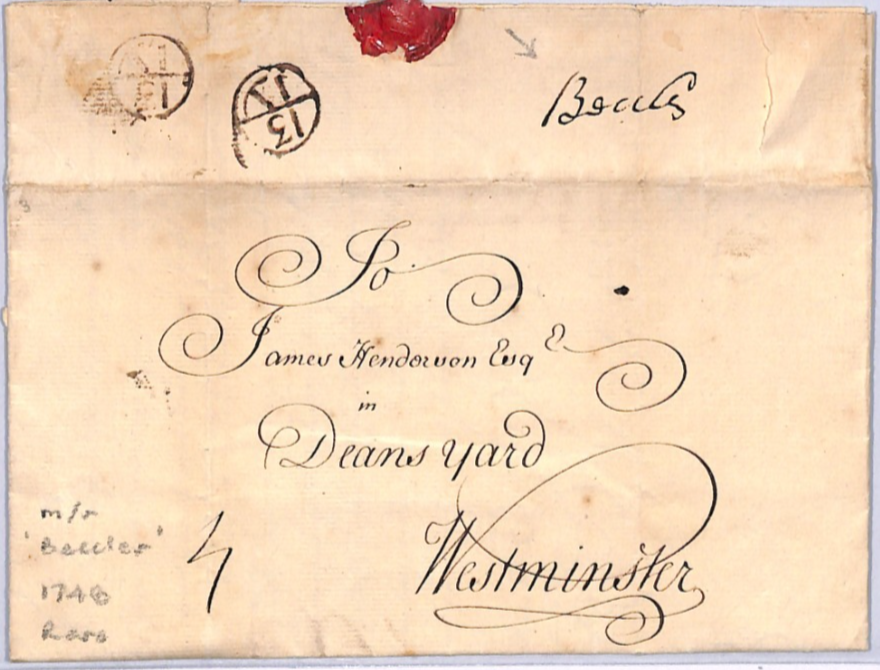 IA
13
IA
13
Beccles
To
James Henderson Esqᴱ
in
Deans yard
Westminster
4
m/s
'Beccles'
1748
Rare